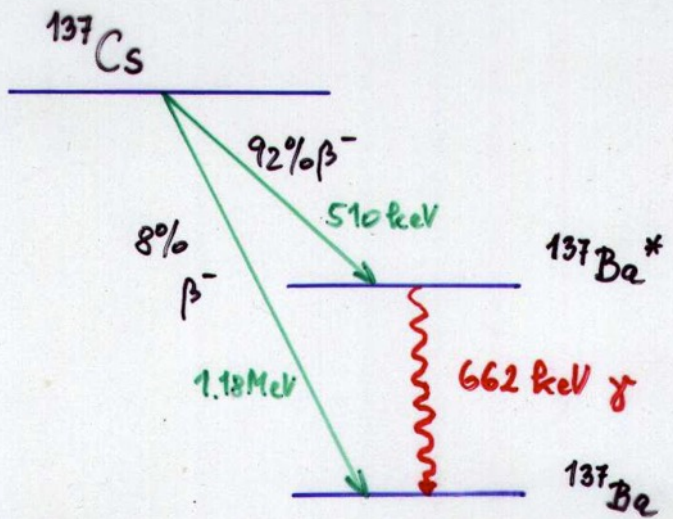 ¹³⁷Cs
92% β⁻
510 keV
8%
β⁻
¹³⁷Ba*
1.18 MeV
662 keV γ
¹³⁷Ba